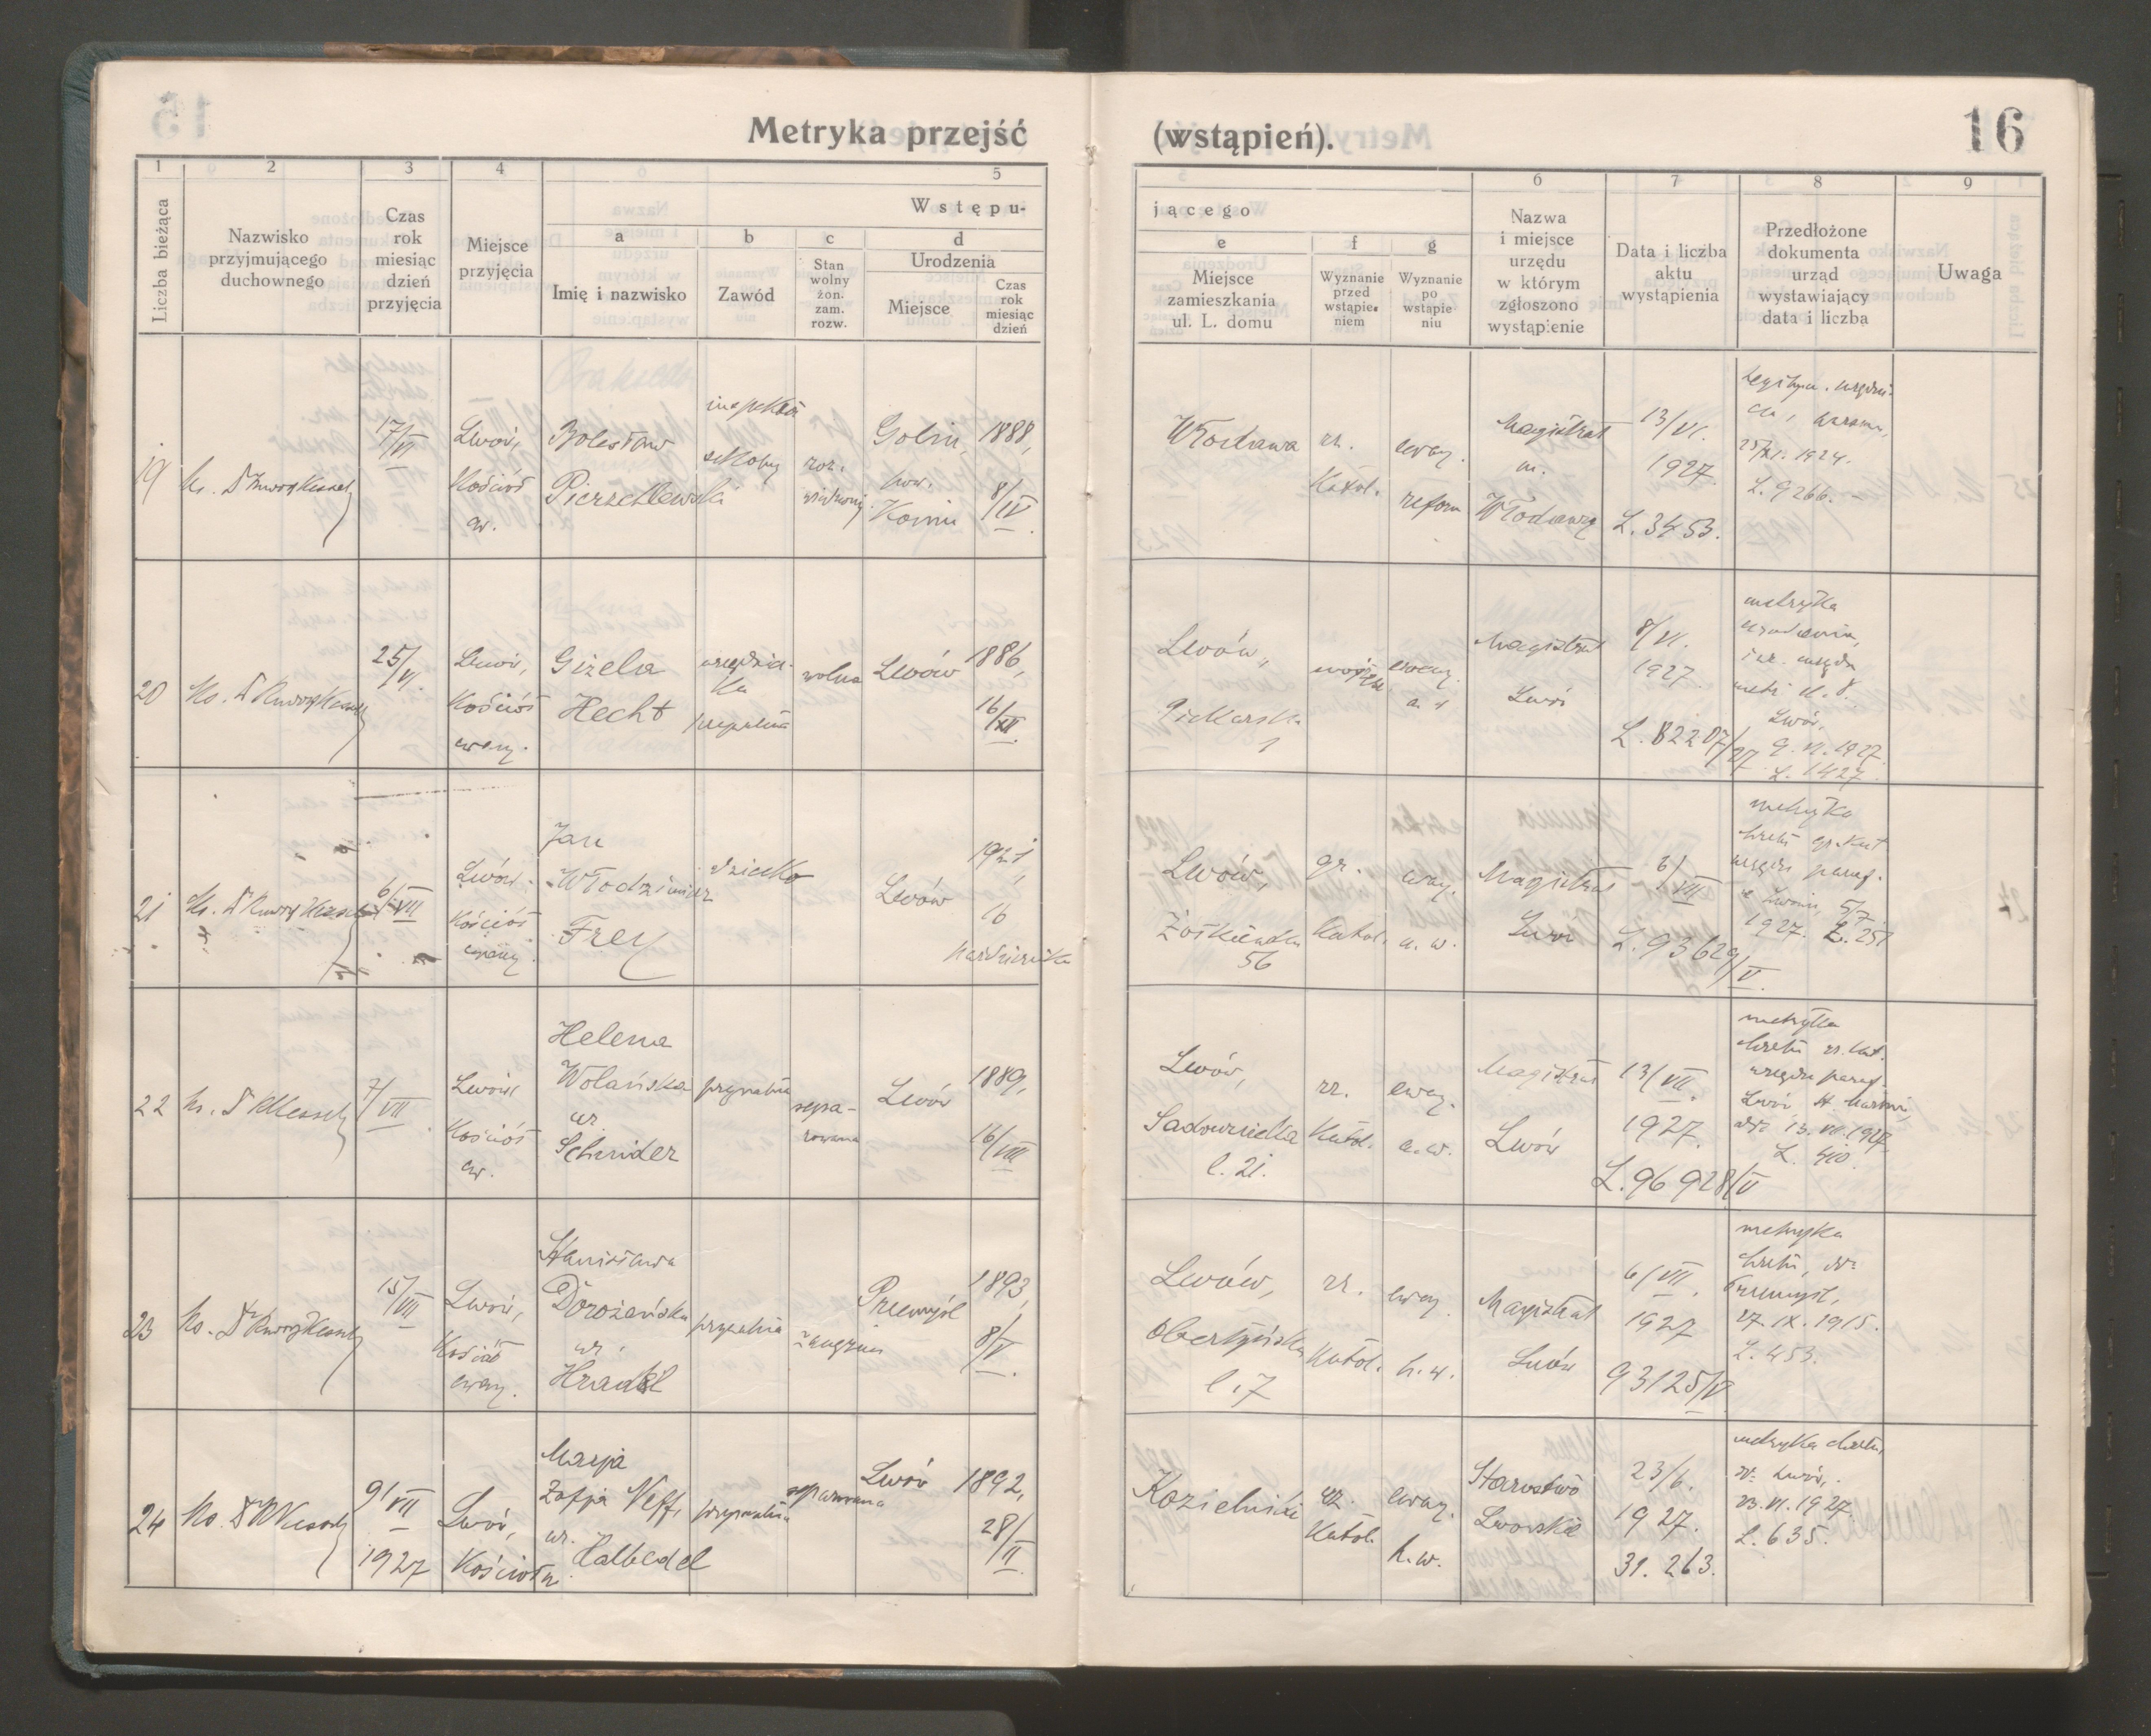 Metryka przejść (wstąpień). 16
1 2 3 4 5
Liczba bieżąca
Nazwisko
przyjmującego
duchownego
Czas
rok
miesiąc
dzień
przyjęcia
Miejsce
przyjęcia
Wstępu-
a b c d
Imię i nazwisko
Zawód
Stan
wolny
żon.
zam.
rozw.
Urodzenia
Miejsce
Czas
rok
miesiąc
dzień
5 6 7 8 9
jącego
e f g
Miejsce
zamieszkania
ul. L. domu
Wyznanie
przed
wstąpie-
niem
Wyznanie
po
wstąpie-
niu
Nazwa
i miejsce
urzędu
w którym
zgłoszono
wystąpienie
Data i liczba
aktu
wystąpienia
Przedłożone
dokumenta
urząd
wystawiający
data i liczba
Uwaga
19
17/VI
Lwów,
Kościół
ew.
Bolesław
inspektor
szkolny
1888,
8/IV
Włodawa
rz.
Katol.
ewang.
reform
Magistrat
Włodawa
13/VI.
1927.
L. 3453.
1924.
L. 9266. -
20
25/VI.
Lwów,
Kościół
ewang.
Gizela
Hecht
wolna
Lwów
1886,
16/XII.
Lwów,
Piekarska
1
ewang.
Magistrat
Lwów
8/VI.
1927.
L. 82207/27
metryka
urodzenia,
Lwów,
9. VI. 1927.
L. 1427.
21
6/VII
Lwów.
Kościół
ewang.
Jan
Włodzimierz
Frey
dziecko
Lwów
1921,
16
października
Lwów,
Żółkiewska
56
gr.
Katol.
ewang.
a. w.
Magistrat
Lwów
6/VII
L. 93629/V.
metryka
chrztu gr. kat
urzędu paraf.
we Lwowie, 5/7.
1927. L. 251
22
7/VII.
Lwów
Kościół
ew.
Helena
Wolańska
ur.
Schnider
prywatna
sepa-
rowana
Lwów
1889,
16/VIII
Lwów,
Sadownicka
l. 21.
rz.
Katol.
ewang.
a. w.
Magistrat
Lwów
13/VII.
1927.
L. 96928/V
metryka
chrztu rz. kat.
urzędu paraf.
13. VII. 1927.
L. 410.
23
15/VII
Lwów,
Kościół
ewang.
Stanisława
Dorożańska
ur.
prywatna
Przemyśl
1893,
8/V.
Lwów,
Obertyńska
l. 7
rz.
Katol.
ewang.
h. w.
Magistrat
Lwów
6/VII.
1927
93125/V
metryka
chrztu,
Przemyśl,
27. IX. 1915.
L. 453.
24
9/VII
1927
Lwów,
Marja
Zofja Neff,
ur. Halbedel
prywatna
separowana
Lwów
1892,
28/II
Kozielniki
rz.
Katol.
ewang.
h. w.
Starostwo
Lwowskie
23/6.
1927.
31. 263.
metryka chrztu,
Lwów,
23. VI. 1927.
L. 635.